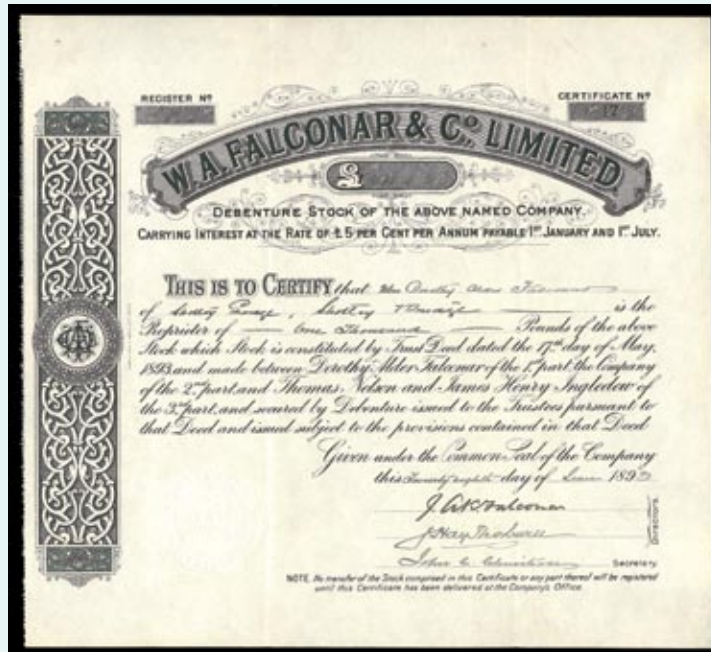 REGISTER Nº
CERTIFICATE Nº
12
W. A. FALCONAR & Cº LIMITED.
£
DEBENTURE STOCK OF THE ABOVE NAMED COMPANY.
CARRYING INTEREST AT THE RATE OF £5 PER CENT PER ANNUM PAYABLE 1ST JANUARY AND 1ST JULY.
THIS IS TO CERTIFY that
of is the
Proprietor of One Thousand Pounds of the above
Stock which Stock is constituted by Trust Deed dated the 17th day of May,
1893 and made between Dorothy Alder Falconar of the 1st part, the Company
of the 2nd part, and Thomas Nelson and James Henry Ingledew of
the 3rd part, and secured by Debenture issued to the Trustees pursuant to
that Deed and issued subject to the provisions contained in that Deed
Given under the Common Seal of the Company
this Twenty eighth day of June 1893
Falconar
Directors.
John Secretary
NOTE. No transfer of the Stock comprised in this Certificate or any part thereof will be registered
until this Certificate has been delivered at the Company's Office.